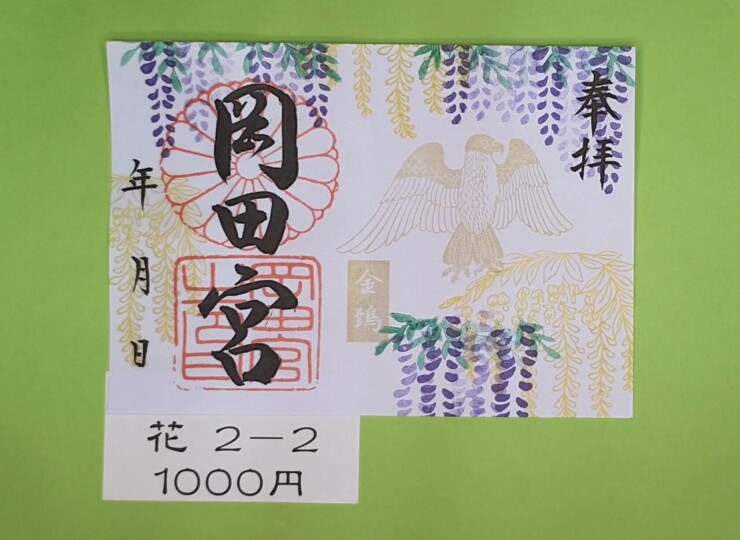 奉拝
岡田宮
年 月 日
金鵄
花 2-2
1000円